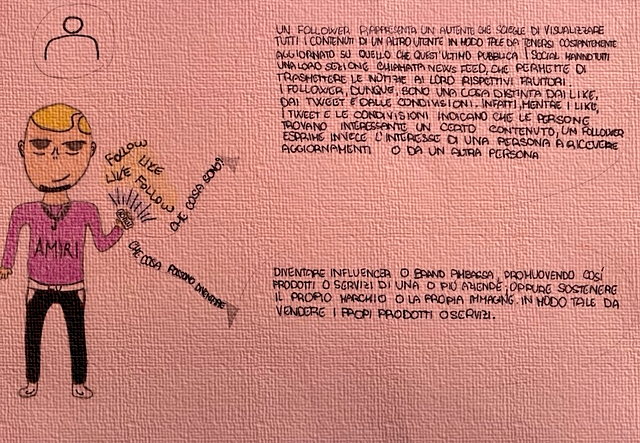 UN FOLLOWER RAPPRESENTA UN AUTENTE CHE SCIEGLE DI VISUALIZZARE
TUTTI I CONTENUTI DI UN ALTRO UTENTE IN MODO TALE DA TENERSI COSTANTEMENTE
AGGIORNATO SU QUELLO CHE QUEST'ULTIMO PUBBLICA I SOCIAL HANNO TUTTI
UNA LORO SEZIONE CHIAMATA NEWS FEED, CHE PERMETTE DI
TRASMETTERE LE NOTIZIE AI LORO RISPETTIVI FRUITORI.
I FOLLOWER, DUNQUE, SONO UNA COSA DISTINTA DAI LIKE,
DAI TWEET E DALLE CONDIVISIONI. INFATTI, MENTRE I LIKE,
I TWEET E LE CONDIVISIONI INDICANO CHE LE PERSONE
TROVANO INTERESSANTE UN CERTO CONTENUTO, UN FOLLOWER
ESPRIME INVECE L'INTERESSE DI UNA PERSONA A RICEVERE
AGGIORNAMENTI O DA UN ALTRA PERSONA
FOLLOW
LIKE
LIKE FOLLOW
CHE COSA SONO?
AMIRI
CHE COSA POSSONO DIVENTARE
DIVENTARE INFLUENCER O BRAND AMBASSA, PROMUOVENDO COSÍ
PRODOTTI O SERVIZI DI UNA O PIÙ AZIENDE; OPPURE SOSTENERE
IL PROPRIO MARCHIO O LA PROPRIA IMMAGINE. IN MODO TALE DA
VENDERE I PROPI PRODOTTI O SERVIZI.